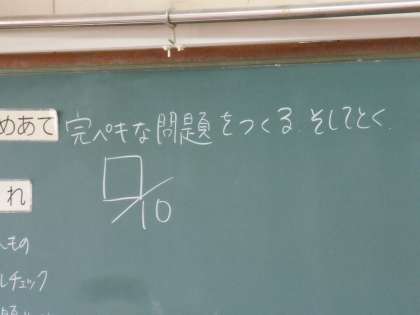 めあて 完ペキな問題をつくる。そしてとく。
□/10
れ
もの
ルチェック